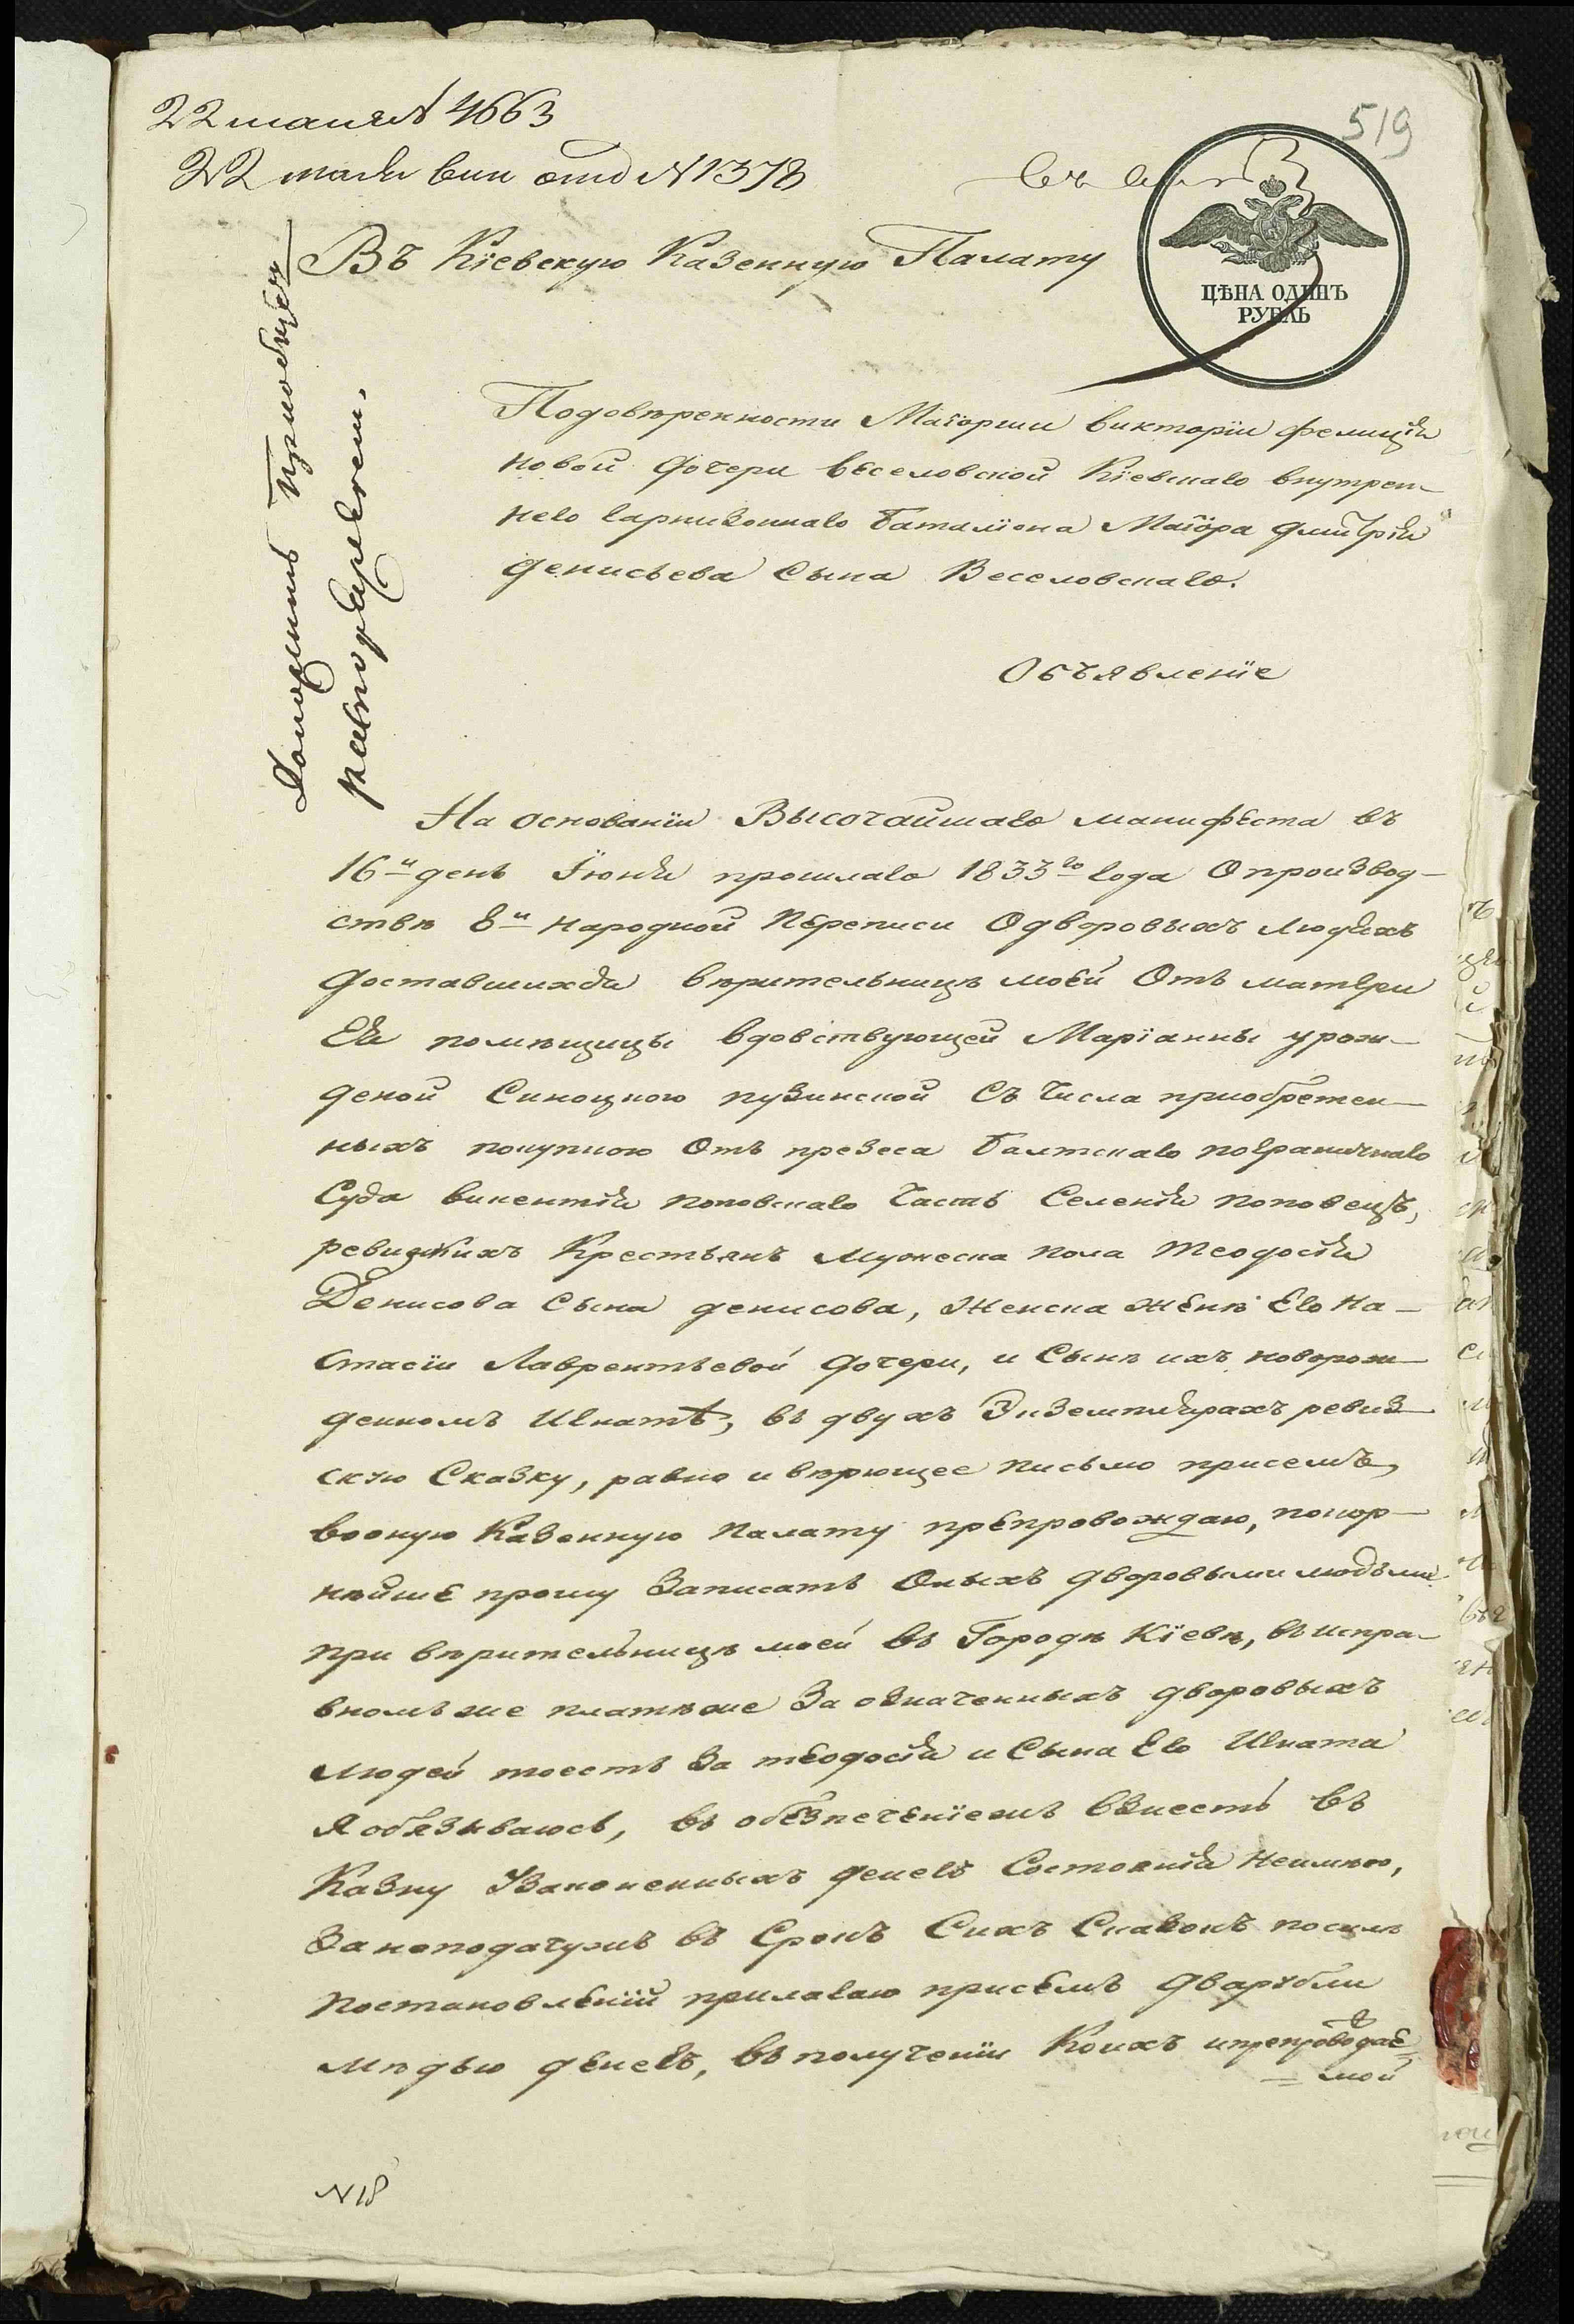 519
22 мая № 4663
22 мая вип отд № 1378
ЦѢНА ОДИНЪ
РУБЛЬ
Въ Кіевскую Казенную Палату
Доложить приобщен
распоряжением.
Подовѣренности Маіорши викторіи фелиція
новой дочери веселовской Кіевскаго внутрен-
него гарнизоннаго баталіона Маіора дмитрія
денисьева сына Веселовскаго.
Объявленіе
На основаніи Высочайшаго манифеста въ
16й день Іюня прошлаго 1833го года О производ-
ствѣ 8й народной переписи О дворовыхъ людяхъ
доставшихся вѣрительницѣ моей Отъ матери
Ея помѣщицы вдовствующей Маріанны урож-
деной пузинской Съ числа приобретен-
ныхъ покупкою Отъ презеса балтскаго пограничнаго
суда викентія поповскаго Часть Селенія поповецъ,
ревизкихъ Крестьянъ мужеска пола теодосія
Денисова Сына денисова, женска женѣ Его На-
стасіи Лаврентьевой дочери, и Сынѣ ихъ новорож-
денномъ Игнатѣ, въ двухъ Экземплярахъ ревиз-
скую Сказку, равно и вѣрющее письмо присемъ,
вооную Казенную палату препровождаю, покор-
нѣйше прошу Записать Оныхъ дворовыми людьми
при вѣрительницѣ моей въ Городѣ Кіевѣ, въ испра-
вномъ же платѣже За означенныхъ дворовыхъ
людей тоесть За теодосія и Сына Его Игната
Я обязываюсь, въ обезпеченіемъ взнесть въ
Казну Узаконенныхъ денегъ Состоянія неимѣю,
За неподачужъ въ Срокъ Сихъ Сказокъ посилѣ
постановленій прилагаю присемъ два рубли
мѣдью денегъ, въ полученіи Коихъ ипрепровождае-
мой
№ 18